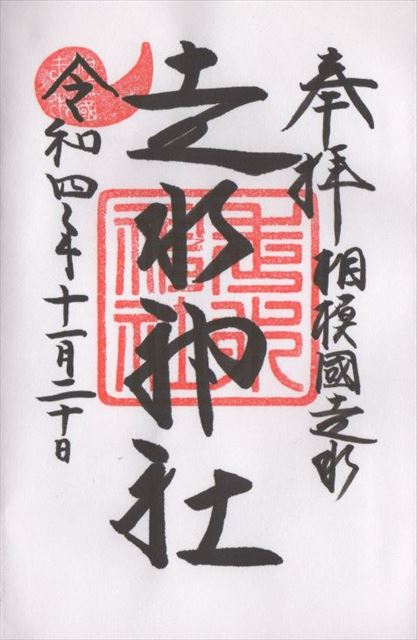 奉拝 相模國走水
走水神社
令和四年十一月二十日
走水神社